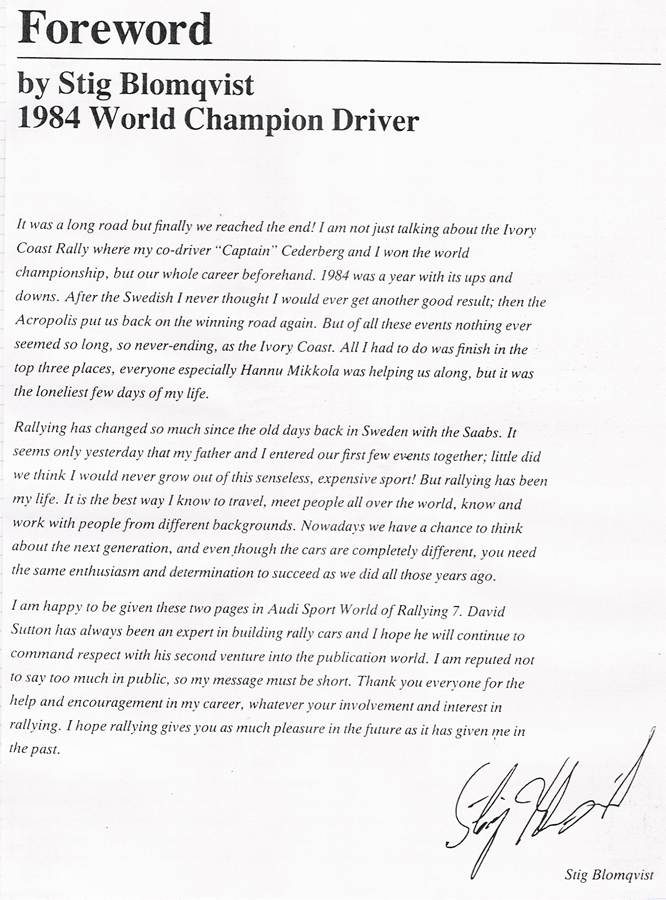 Foreword
by Stig Blomqvist
1984 World Champion Driver
It was a long road but finally we reached the end! I am not just talking about the Ivory
Coast Rally where my co-driver “Captain” Cederberg and I won the world
championship, but our whole career beforehand. 1984 was a year with its ups and
downs. After the Swedish I never thought I would ever get another good result; then the
Acropolis put us back on the winning road again. But of all these events nothing ever
seemed so long, so never-ending, as the Ivory Coast. All I had to do was finish in the
top three places, everyone especially Hannu Mikkola was helping us along, but it was
the loneliest few days of my life.
Rallying has changed so much since the old days back in Sweden with the Saabs. It
seems only yesterday that my father and I entered our first few events together; little did
we think I would never grow out of this senseless, expensive sport! But rallying has been
my life. It is the best way I know to travel, meet people all over the world, know and
work with people from different backgrounds. Nowadays we have a chance to think
about the next generation, and even though the cars are completely different, you need
the same enthusiasm and determination to succeed as we did all those years ago.
I am happy to be given these two pages in Audi Sport World of Rallying 7. David
Sutton has always been an expert in building rally cars and I hope he will continue to
command respect with his second venture into the publication world. I am reputed not
to say too much in public, so my message must be short. Thank you everyone for the
help and encouragement in my career, whatever your involvement and interest in
rallying. I hope rallying gives you as much pleasure in the future as it has given me in
the past.
Stig Blomqvist
Stig Blomqvist